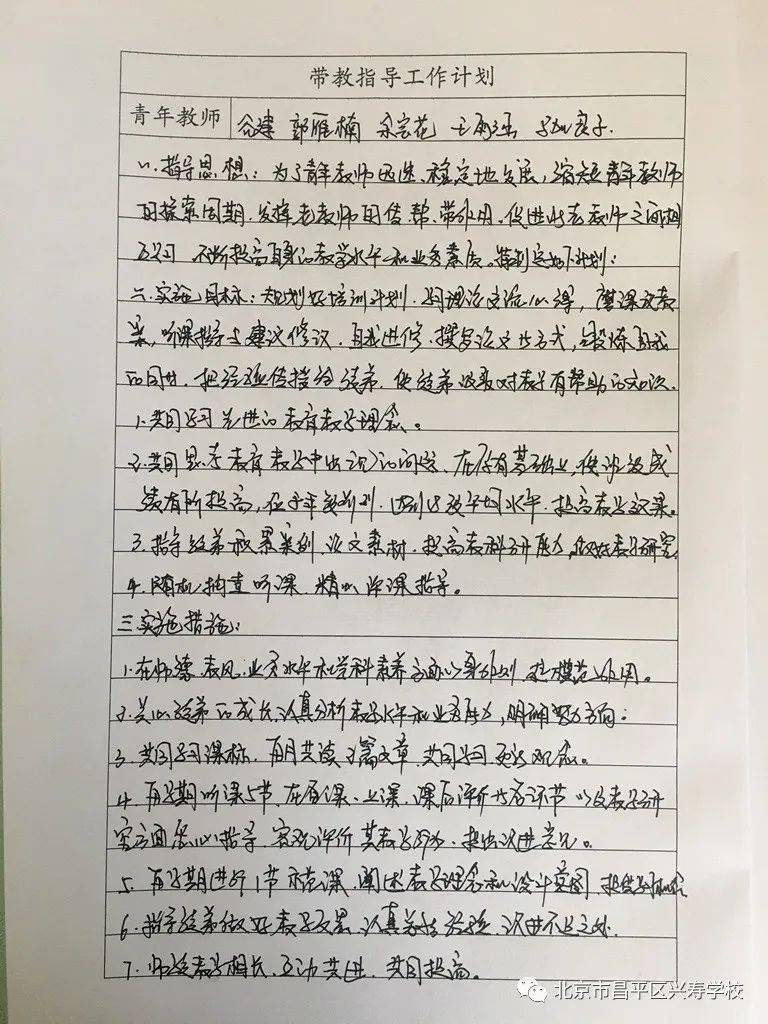 带教指导工作计划
青年教师 谷建 郭雁楠 余宏花
一.指导思想：为了青年教师迅速、稳定地发展，缩短青年教师
的探索周期.发挥老教师的传、帮、带作用.促进新老教师之间相
互学习 不断提高自身的教学水平和业务素质。特制定如下计划：
二.实施目标：规划好培训计划.学习理论交流心得，磨课改教
案，听课指导与建议修议.自我进修.撰写论文等方式，锻炼自我
的同时.把经验传授给徒弟.使徒弟汲取对教学有帮助的知识.
1.共同学习先进的教育教学理念。
2.共同思考教育教学中出现的问题、在原有基础上，使班级成
绩有所提高，在全年级前列.达到以及平均水平.提高教学效果。
3.指导徒弟积累案例.论文素材.提高教科研能力，做好教学研究
4.随机抽查听课.精心评课指导。
三.实施措施：
1.在师德教风.业务水平和学科素养方面以身作则 起模范作用。
2.关心徒弟的成长.认真分析教学水平和业务能力，明确努力方向：
3.共同学习课标.每月共读1篇文章.共同学习更新观念。
4.每学期听课5节.在备课.上课.课后评价等各环节以及教学研
究方面悉心指导.客观评价其教学行为.提出改进意见。
5.每学期进行1节示范课.阐述教学理念和设计意图.提供学习机会
6.指导徒弟做好教学反思.认真总结经验.改进不足之处.
7.师徒教学相长.互动共进.共同提高。
北京市昌平区兴寿学校